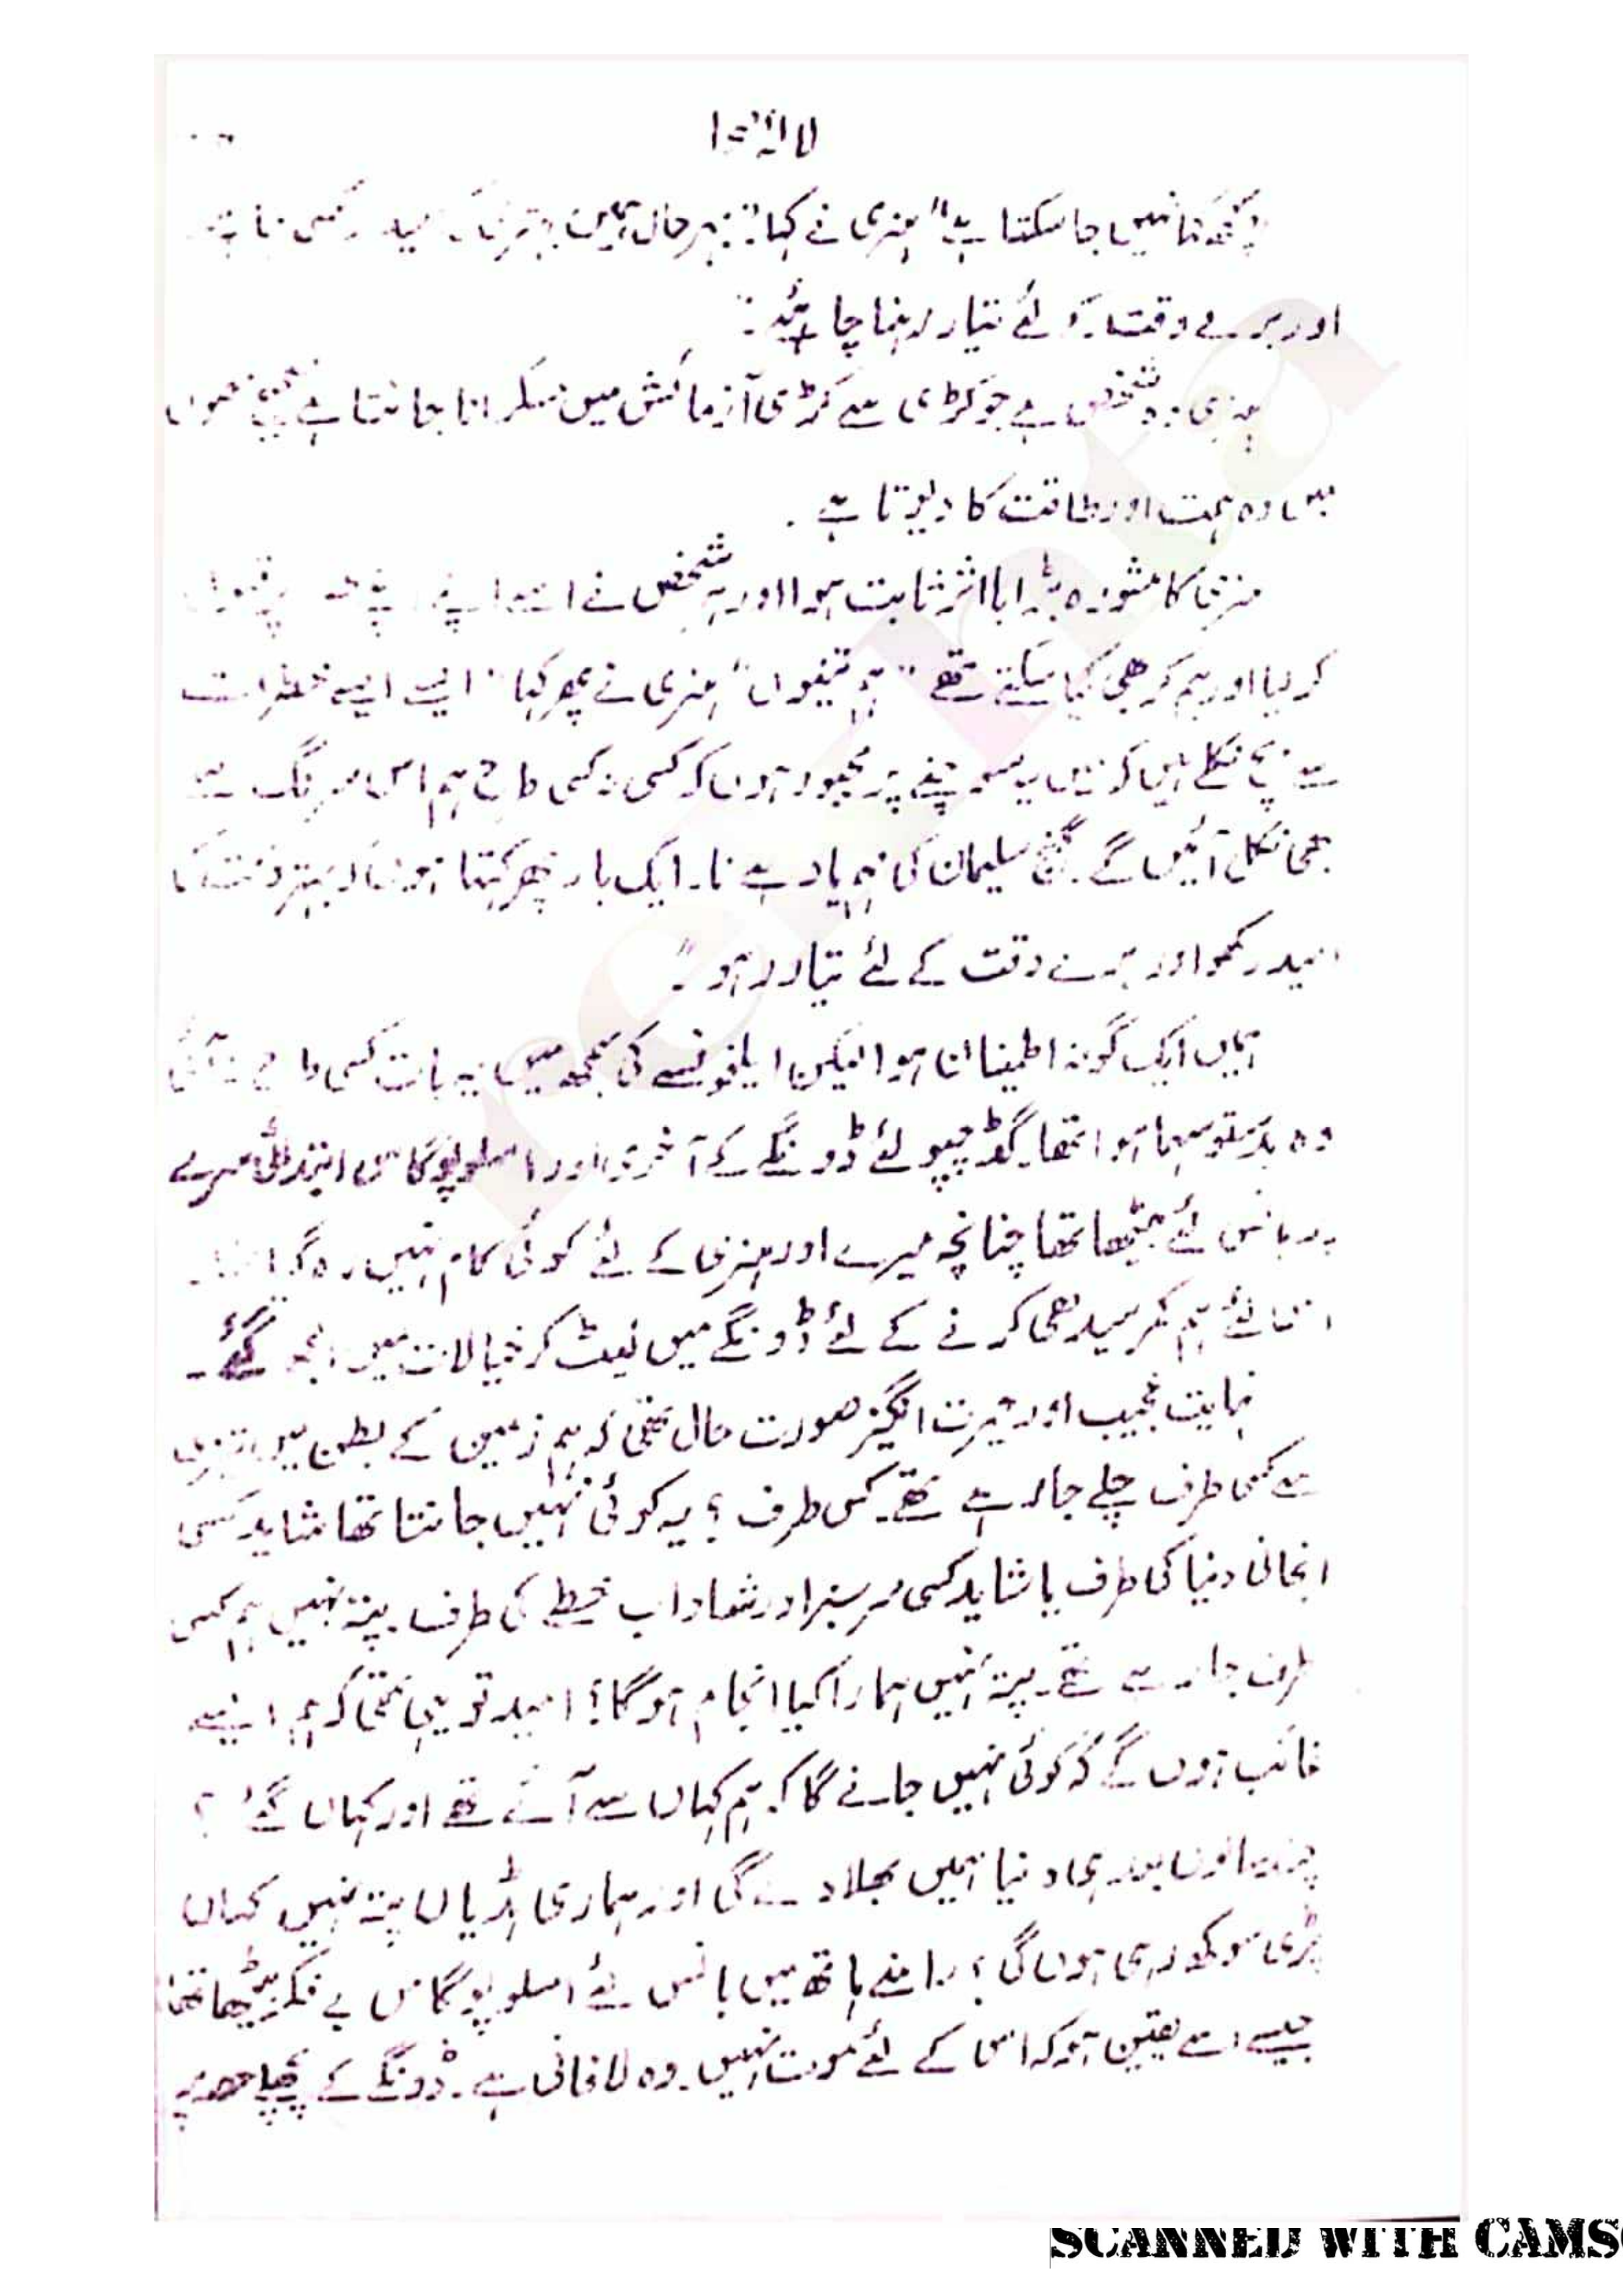 کچھ کہا نہیں جا سکتا ہے" ہنری نے کہا "بہر حال ہمیں بہترین کی امید رکھنی
اور برے وقت کے لئے تیار رہنا چاہیئے:"
ہنری وہ شخص ہے جو کڑی سے کڑی آزمائش میں مسکرانا جانتا ہے
میں وہ ہمت اور طاقت کا دیوتا ہے.
ہنری کا مشورہ بڑا با اثر ثابت ہوا اور ہر شخص نے اسے اپنے اپنے
کر لیا اور ہم کر بھی کیا سکتے تھے "ہم تینوں" ہنری نے پھر کہا "ایسے ایسے خطرات
سے بچ نکلے ہیں کہ میں یہ سوچنے پر مجبور ہوں کہ کسی نہ کسی طرح ہم اس سرنگ سے
بھی نکل آئیں گے۔ گنج سلیمان کی مہم یاد ہے نا۔ ایک بار پھر کہتا ہوں کہ بہتر وقت کی
امید رکھو اور برے وقت کے لئے تیار رہو۔"
ہمیں ایک گونہ اطمینان ہوا لیکن ایلفونسے کی سمجھ میں یہ بات کسی طرح نہ آئی
وہ بدستور سہما ہوا تھا۔ گڈ چپو لئے ڈونگے کے آخری اور امسلوپوگاس ابتدائی سرے
پر بانس لئے بیٹھا تھا چنانچہ میرے اور ہنری کے لئے کوئی کام نہیں رہ گیا تھا۔
اس لئے ہم کمر سیدھی کرنے کے لئے ڈونگے میں لیٹ کر خیالات میں الجھ گئے۔
نہایت عجیب اور حیرت انگیز صورت حال تھی کہ ہم زمین کے بطن میں تیزی
سے کسی طرف چلے جا رہے تھے۔ کس طرف؟ یہ کوئی نہیں جانتا تھا شاید کسی
انجانی دنیا کی طرف یا شاید کسی سرسبز اور شاداب خطے کی طرف۔ پتہ نہیں ہم کس
طرف جا رہے تھے۔ پتہ نہیں ہمارا کیا انجام ہوگا؟ امید تو یہی تھی کہ ہم ایسے
غائب ہوں گے کہ کوئی نہیں جانے گا کہ ہم کہاں سے آئے تھے اور کہاں گئے؟
چند سالوں بعد ہی دنیا ہمیں بھلا دے گی اور ہماری ہڈیاں پتہ نہیں کہاں
پڑی سوکھ رہی ہوں گی؟ سامنے ہاتھ میں بانس لئے امسلوپوگاس بے فکر بیٹھا تھا
جیسے اسے یقین ہو کہ اس کے لئے موت نہیں۔ وہ لافانی ہے۔ ڈونگے کے پچھلے حصہ پر
SCANNED WITH CAMS